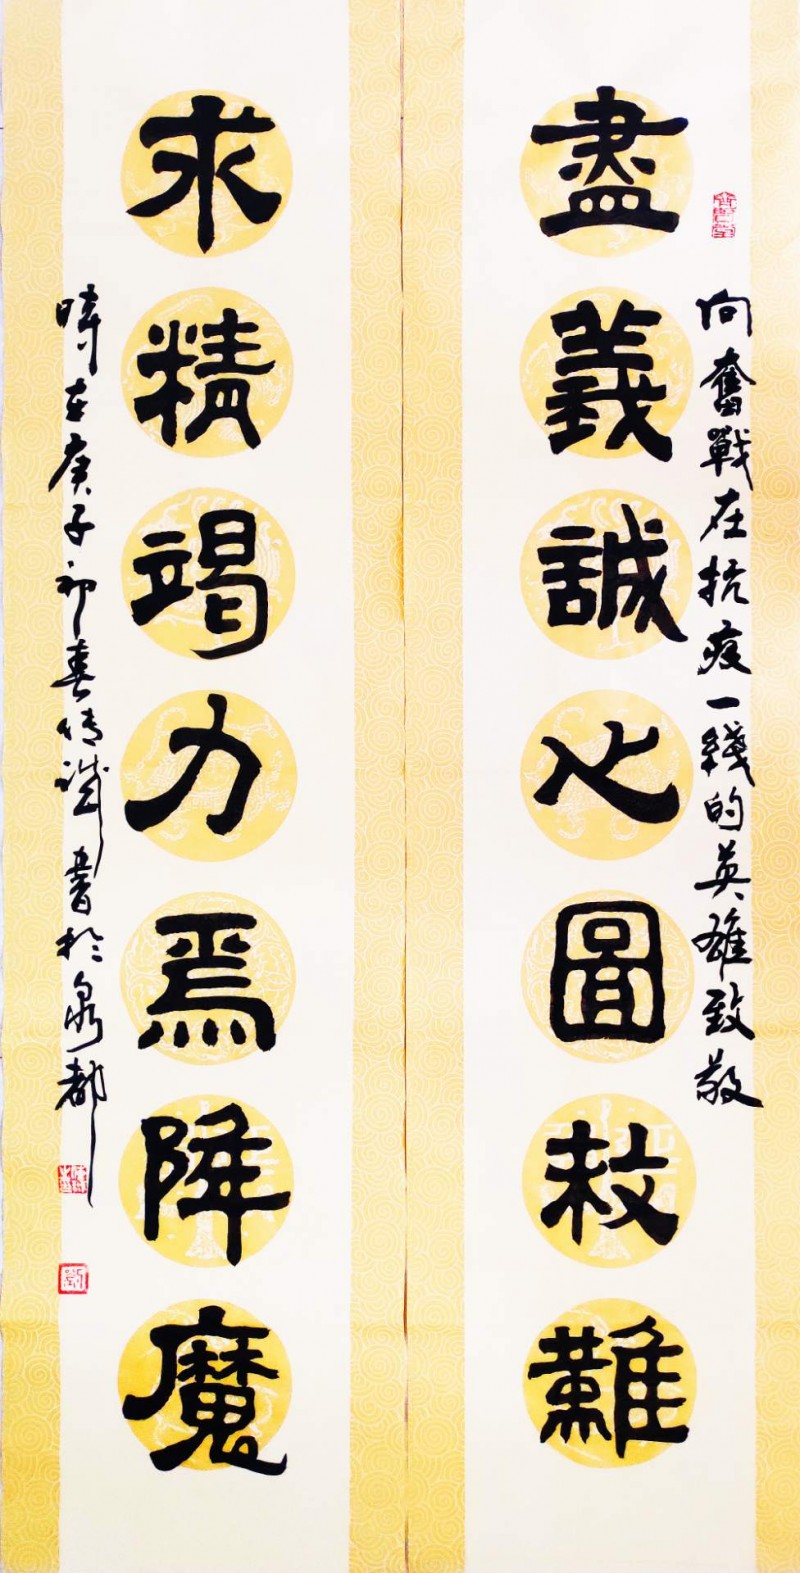 向奮戰在抗疫一綫的英雄致敬
盡義誠心圖救難
求精竭力焉降魔
時在庚子初春情誠書於泉都